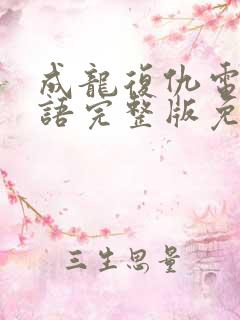 成龍復仇電
語完整版免
三生思量